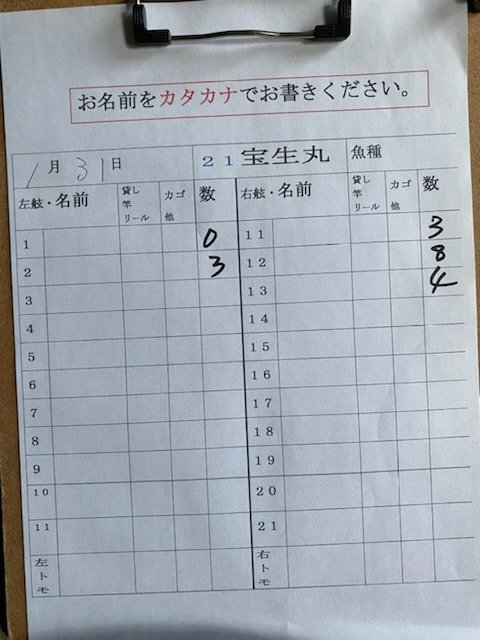 お名前をカタカナでお書きください。
1月31日 21宝生丸 魚種
左舷・名前 貸し竿リール カゴ他 数 右舷・名前 貸し竿リール カゴ他 数
1 0 11 3
2 3 12 8
3 13 4
4 14
5 15
6 16
7 17
8 18
9 19
10 20
11 21
左トモ 右トモ